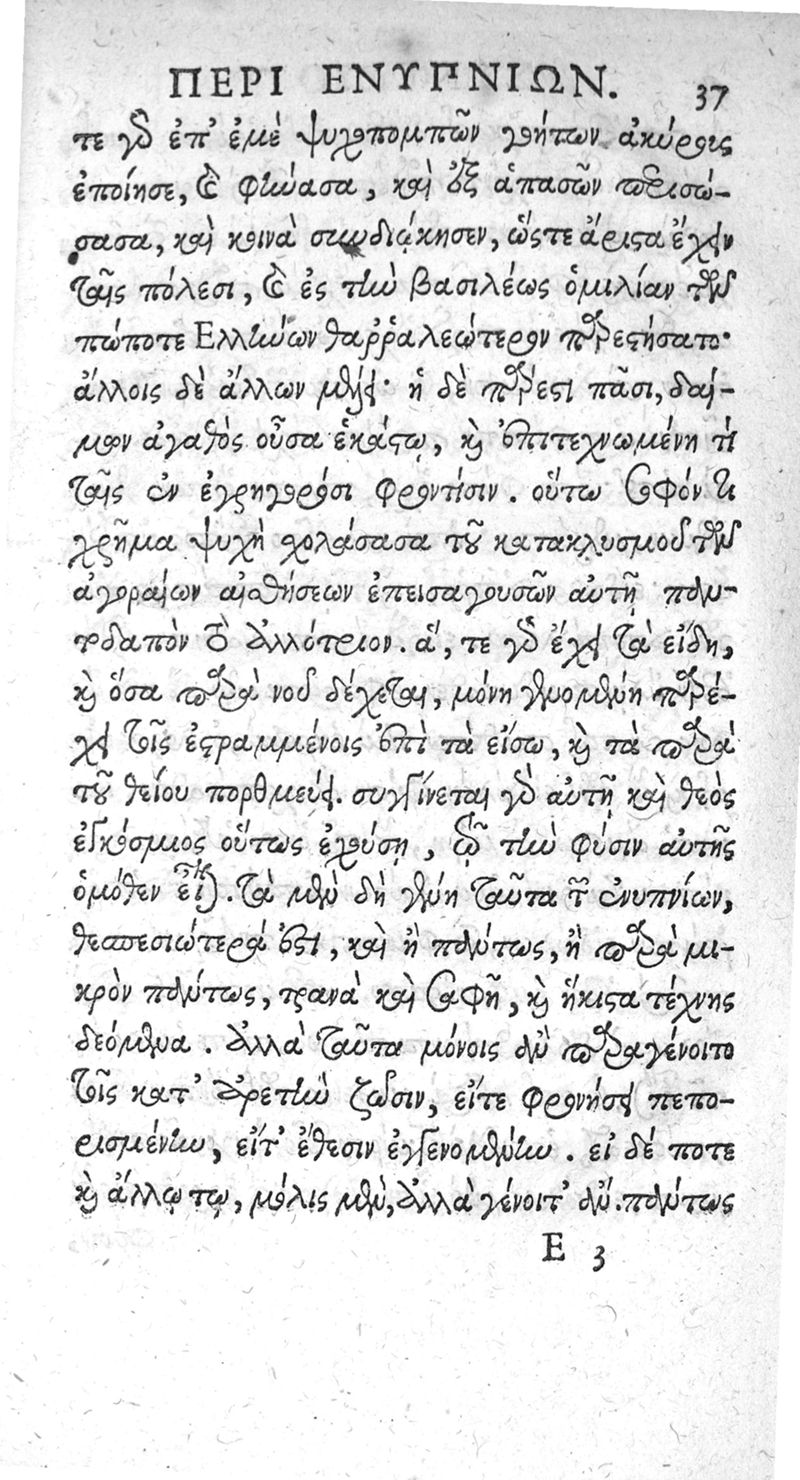 ΠΕΡΙ ΕΝΥΠΝΙΩΝ. 37
τε γὸ ἐπ' ἐμὲ ψυχοπομπῶν γοήτων ἀκύρους
ἐποίησε, καὶ φήνασα, καὶ ἐξ ἁπασῶν περισώ-
σασα, καὶ κοινὰ συνδιῴκησεν, ὥςτε ἄριστα ἔχειν
ταῖς πόλεσι, καὶ ἐς τὴν βασιλέως ὁμιλίαν τῶν
πώποτε Ελλήνων θαῤῥαλεώτερον παρεστήσατο·
ἄλλοις δὲ ἄλλων μέλει· ἡ δὲ πάρεστι πᾶσι, δαί-
μων ἀγαθὸς οὖσα ἑκάστῳ, καὶ ἐπιτεχνωμένη τι
ταῖς ἐν ἐγρηγορόσι φροντίσιν. οὕτω σοφόν τι
χρῆμα ψυχὴ σχολάσασα τοῦ κατακλυσμοῦ τῶν
ἀγοραίων αἰσθήσεων ἐπεισαγουσῶν αὐτῇ παν-
τοδαπὸν τὸ ἀλλότριον. ἅ, τε γὸ ἔχει τὰ εἴδη,
καὶ ὅσα παρὰ νοῦ δέχεται, μόνη γενομένη παρέ-
χει τοῖς ἐστραμμένοις ἐπὶ τὰ εἴσω, καὶ τὰ παρὰ
τοῦ θείου πορθμεύει. συγγίνεται γὸ αὐτῇ καὶ θεὸς
ἐγκόσμιος οὕτως ἐχούσῃ, τῷ τὴν φύσιν αὐτῆς
ὁμόθεν εἶναι. τὰ μὲν δὴ γένη ταῦτα τῶν ἐνυπνίων,
θεσπεσιώτερά ἐστι, καὶ ἢ πάντως, ἢ παρὰ μι-
κρὸν πάντως, τρανὰ καὶ σαφῆ, καὶ ἥκιστα τέχνης
δεόμενα. ἀλλὰ ταῦτα μόνοις ἂν παραγένοιτο
τοῖς κατ' ἀρετὴν ζῶσιν, εἴτε φρονήσει πεπο-
ρισμένην, εἴτ' ἔθεσιν ἐγγενομένην. εἰ δέ ποτε
καὶ ἄλλῳ τῳ, μόλις μὲν, ἀλλὰ γένοιτ' ἄν. πάντως
E 3